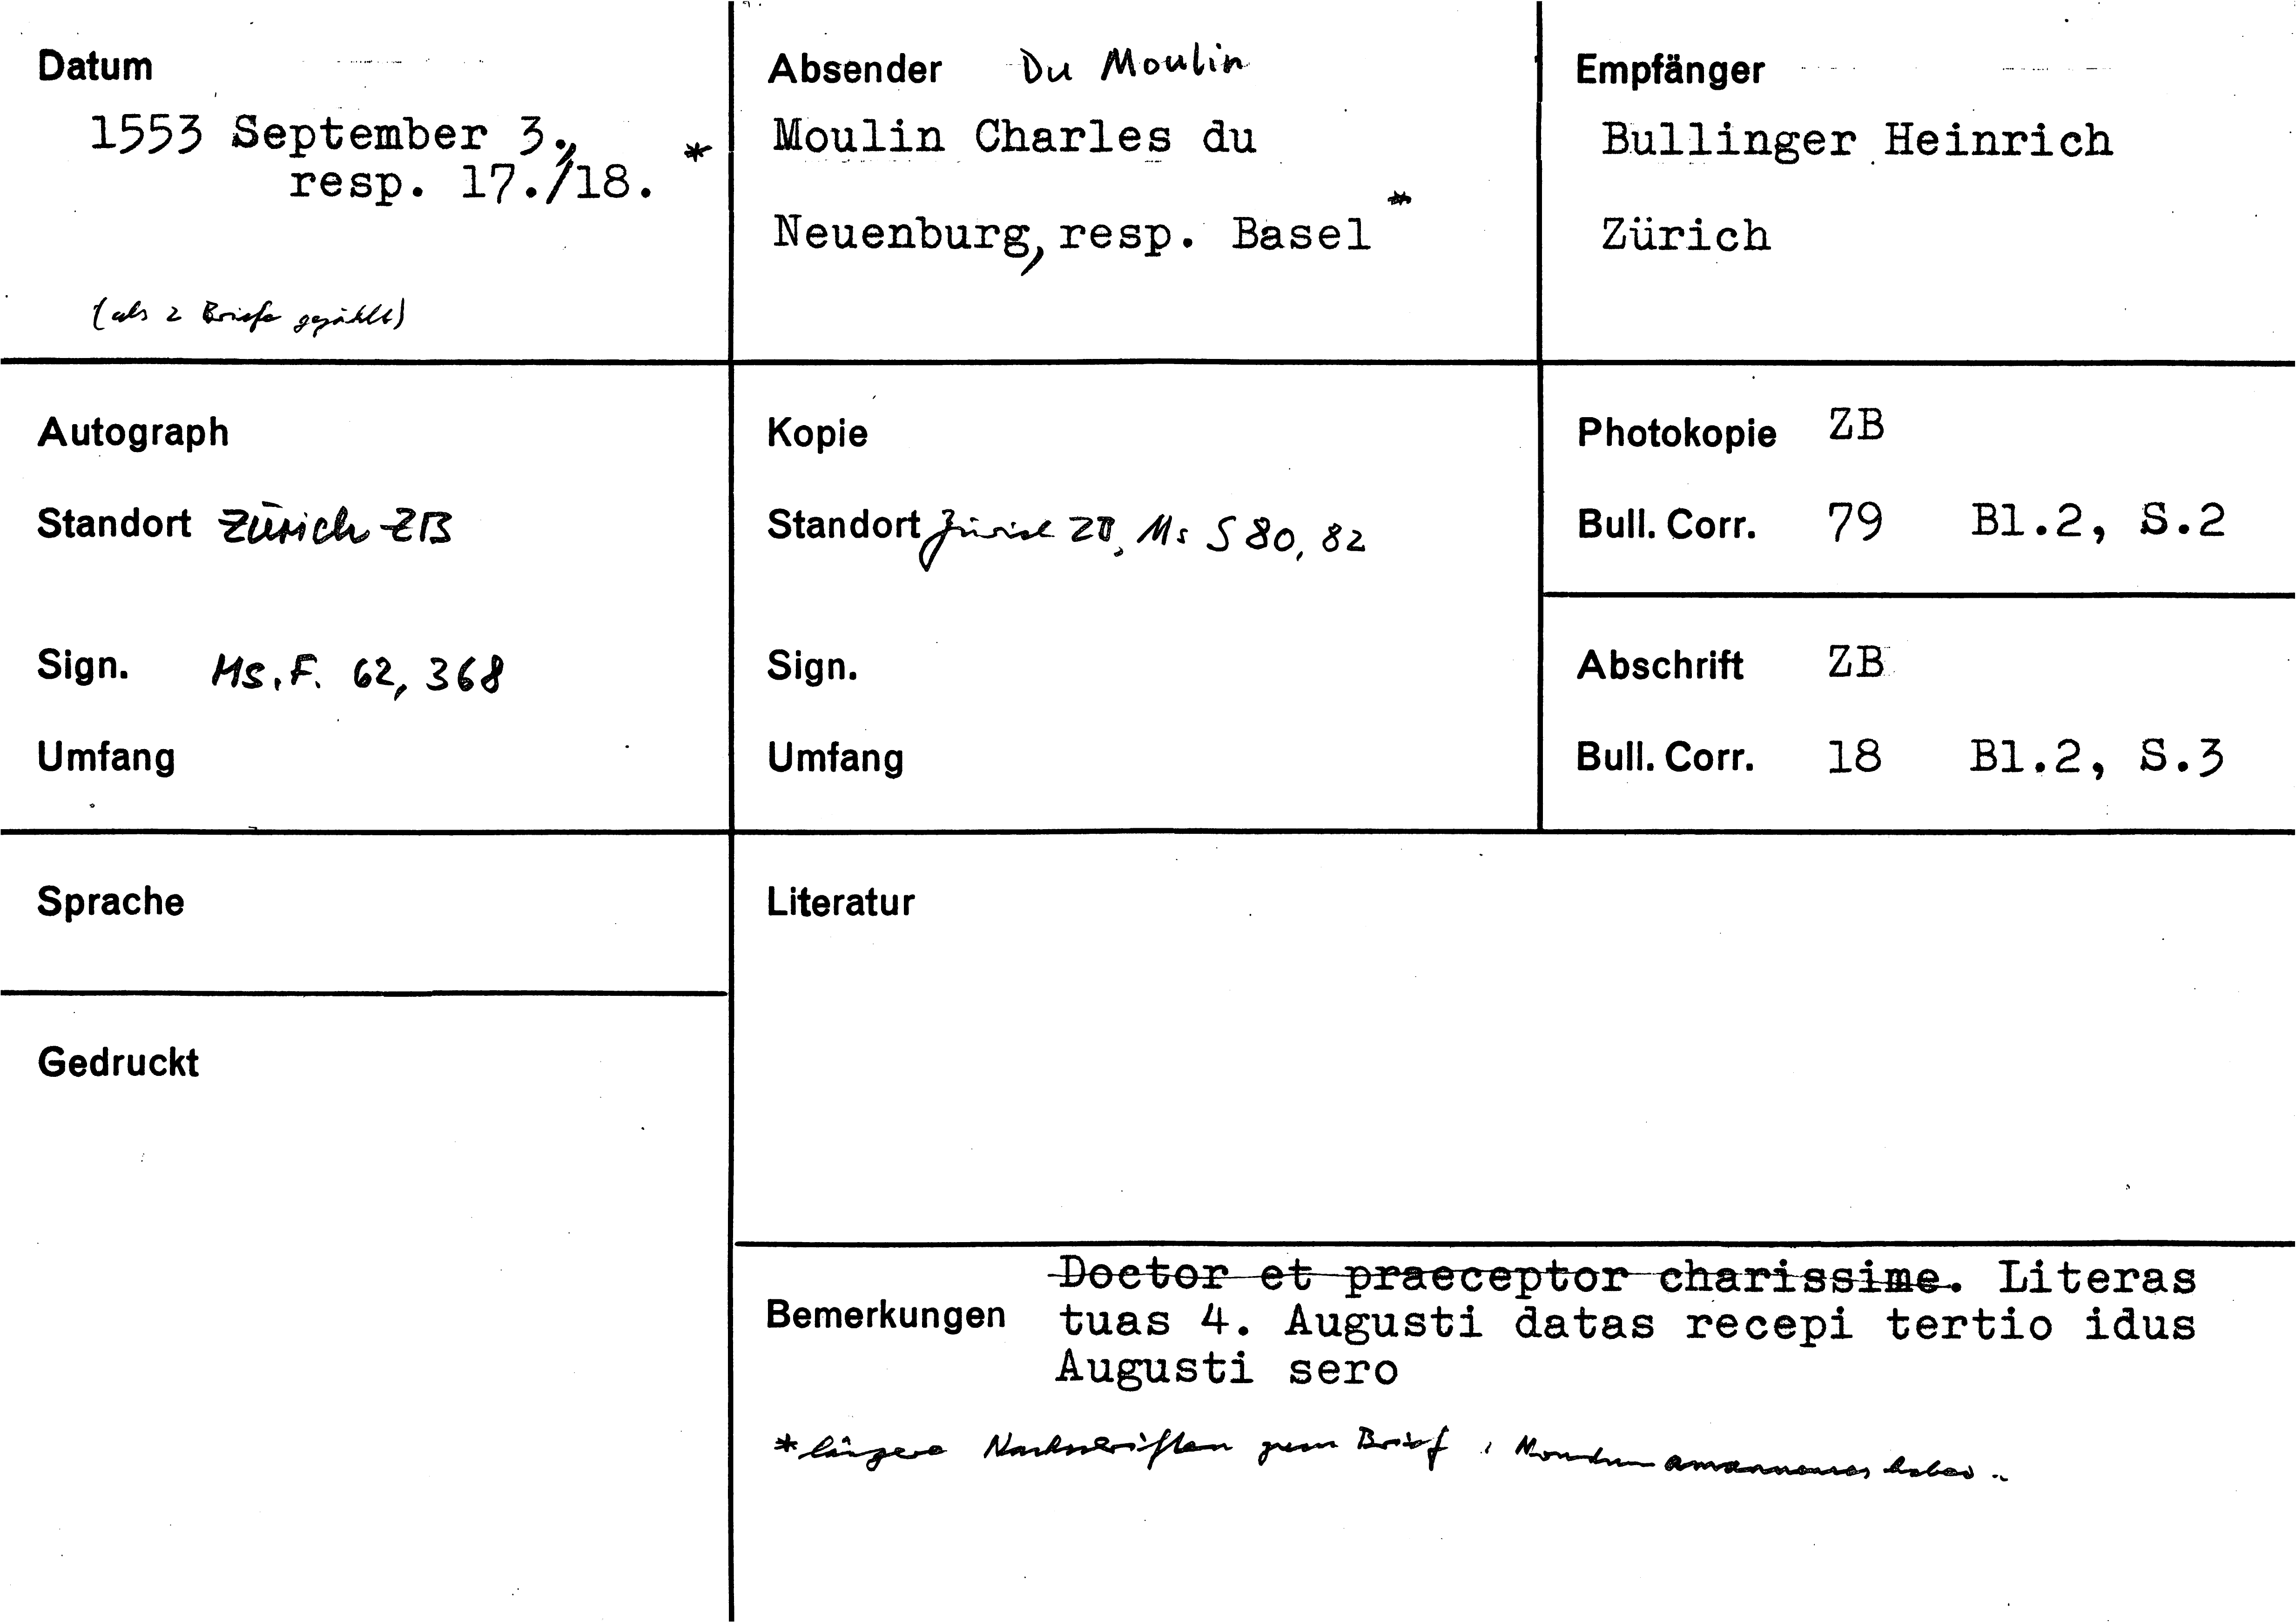 Datum
1553 September 3., *
resp. 17./18.
(als 2 Briefe gezählt)
Absender Du Moulin
Moulin Charles du
Neuenburg, resp. Basel *
Empfänger
Bullinger Heinrich
Zürich
Autograph
Standort Zürich ZB
Sign. Ms. F. 62, 368
Umfang
Kopie
Standort Zürich ZB, Ms S 80, 82
Sign.
Umfang
Photokopie ZB
Bull. Corr. 79 Bl.2, S.2
Abschrift ZB
Bull. Corr. 18 Bl.2, S.3
Sprache
Gedruckt
Literatur
Bemerkungen
Doctor et praeceptor charissime. Literas
tuas 4. Augusti datas recepi tertio idus
Augusti sero
* längere Nachschriften zum Brief